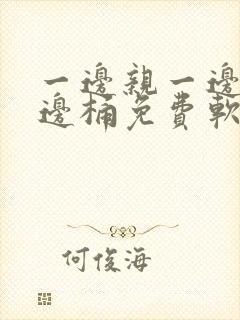 一邊親一邊
邊桶免費軟
何俊海